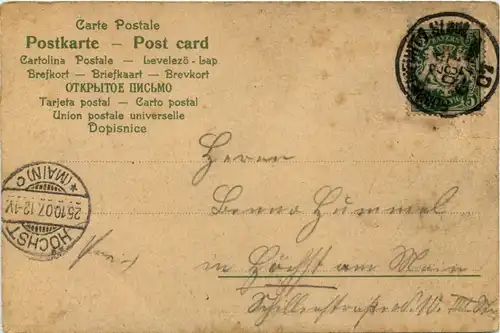 Carte Postale
Postkarte – Post card
Cartolina Postale – Levelező-Lap
Brefkort – Briefkaart – Brevkort
ОТКРЫТОЕ ПИСЬМО
Tarjeta postal – Carto postal
Union postale universelle
Dopisnice
Herrn
Benno Hummel
in Höchst am Main
Schillerstraße
HÖCHST
25.10.07. 12-1V.
*(MAIN) C
BAYERN
5